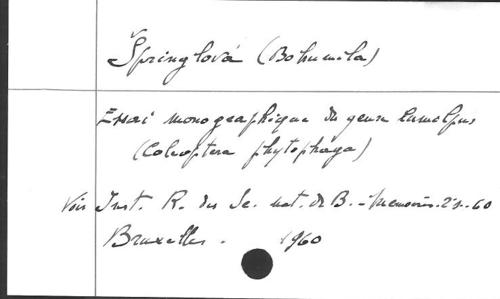 Špringlová (Bohumila)
Essai monographique du genre Eumolpus
(Coleoptera phytophaga)
Voir Inst. R. des Sc. nat. de B. - Memoires. 2 s. - 60
Bruxelles . 1960